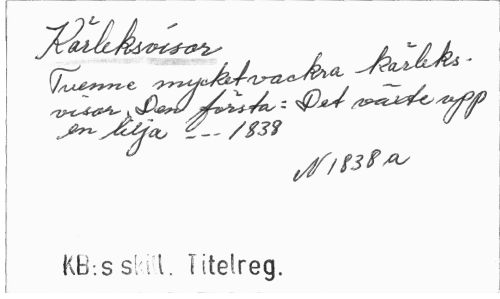 Kärleksvisor
Tvenne mycket vackra kärleks-
visor, Den första: Det växte upp
en lilja --- 1838
N 1838 a
KB:s skill. Titelreg.